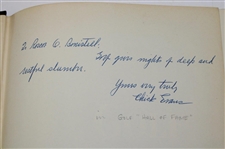 To Russ C.
For good nights of deep and
restful slumber.
Yours very truly
Chick Evans
Golf "Hall of Fame"